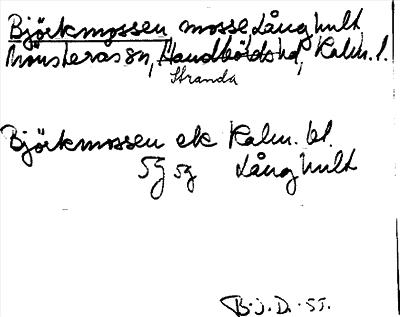 Björkmossen mosse, Långhult
Mönsterås sn, Handbördshd, Kalm. l.
Stranda
Björkmossen ek Kalm. bl.
5g sg Långhult
B.j.D. -55.